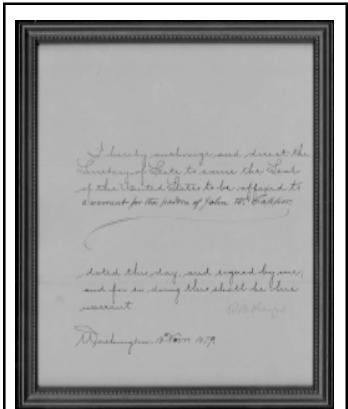 I hereby authorize and direct the
Secretary of State to cause the Seal
of the United States to be affixed to
a warrant for the pardon of John W.
dated this day, and signed by me;
and for so doing this shall be his
warrant
R B Hayes
Washington, Novr 1879.